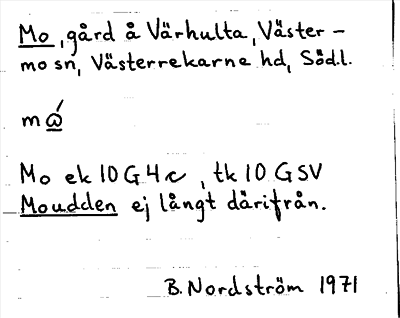 Mo, gård å Värhulta, Väster-
mo sn, Västerrekarne hd, Södl.
mώ
Mo ek 10G4c, tk 10 GSV
Moudden ej långt därifrån.
B. Nordström 1971